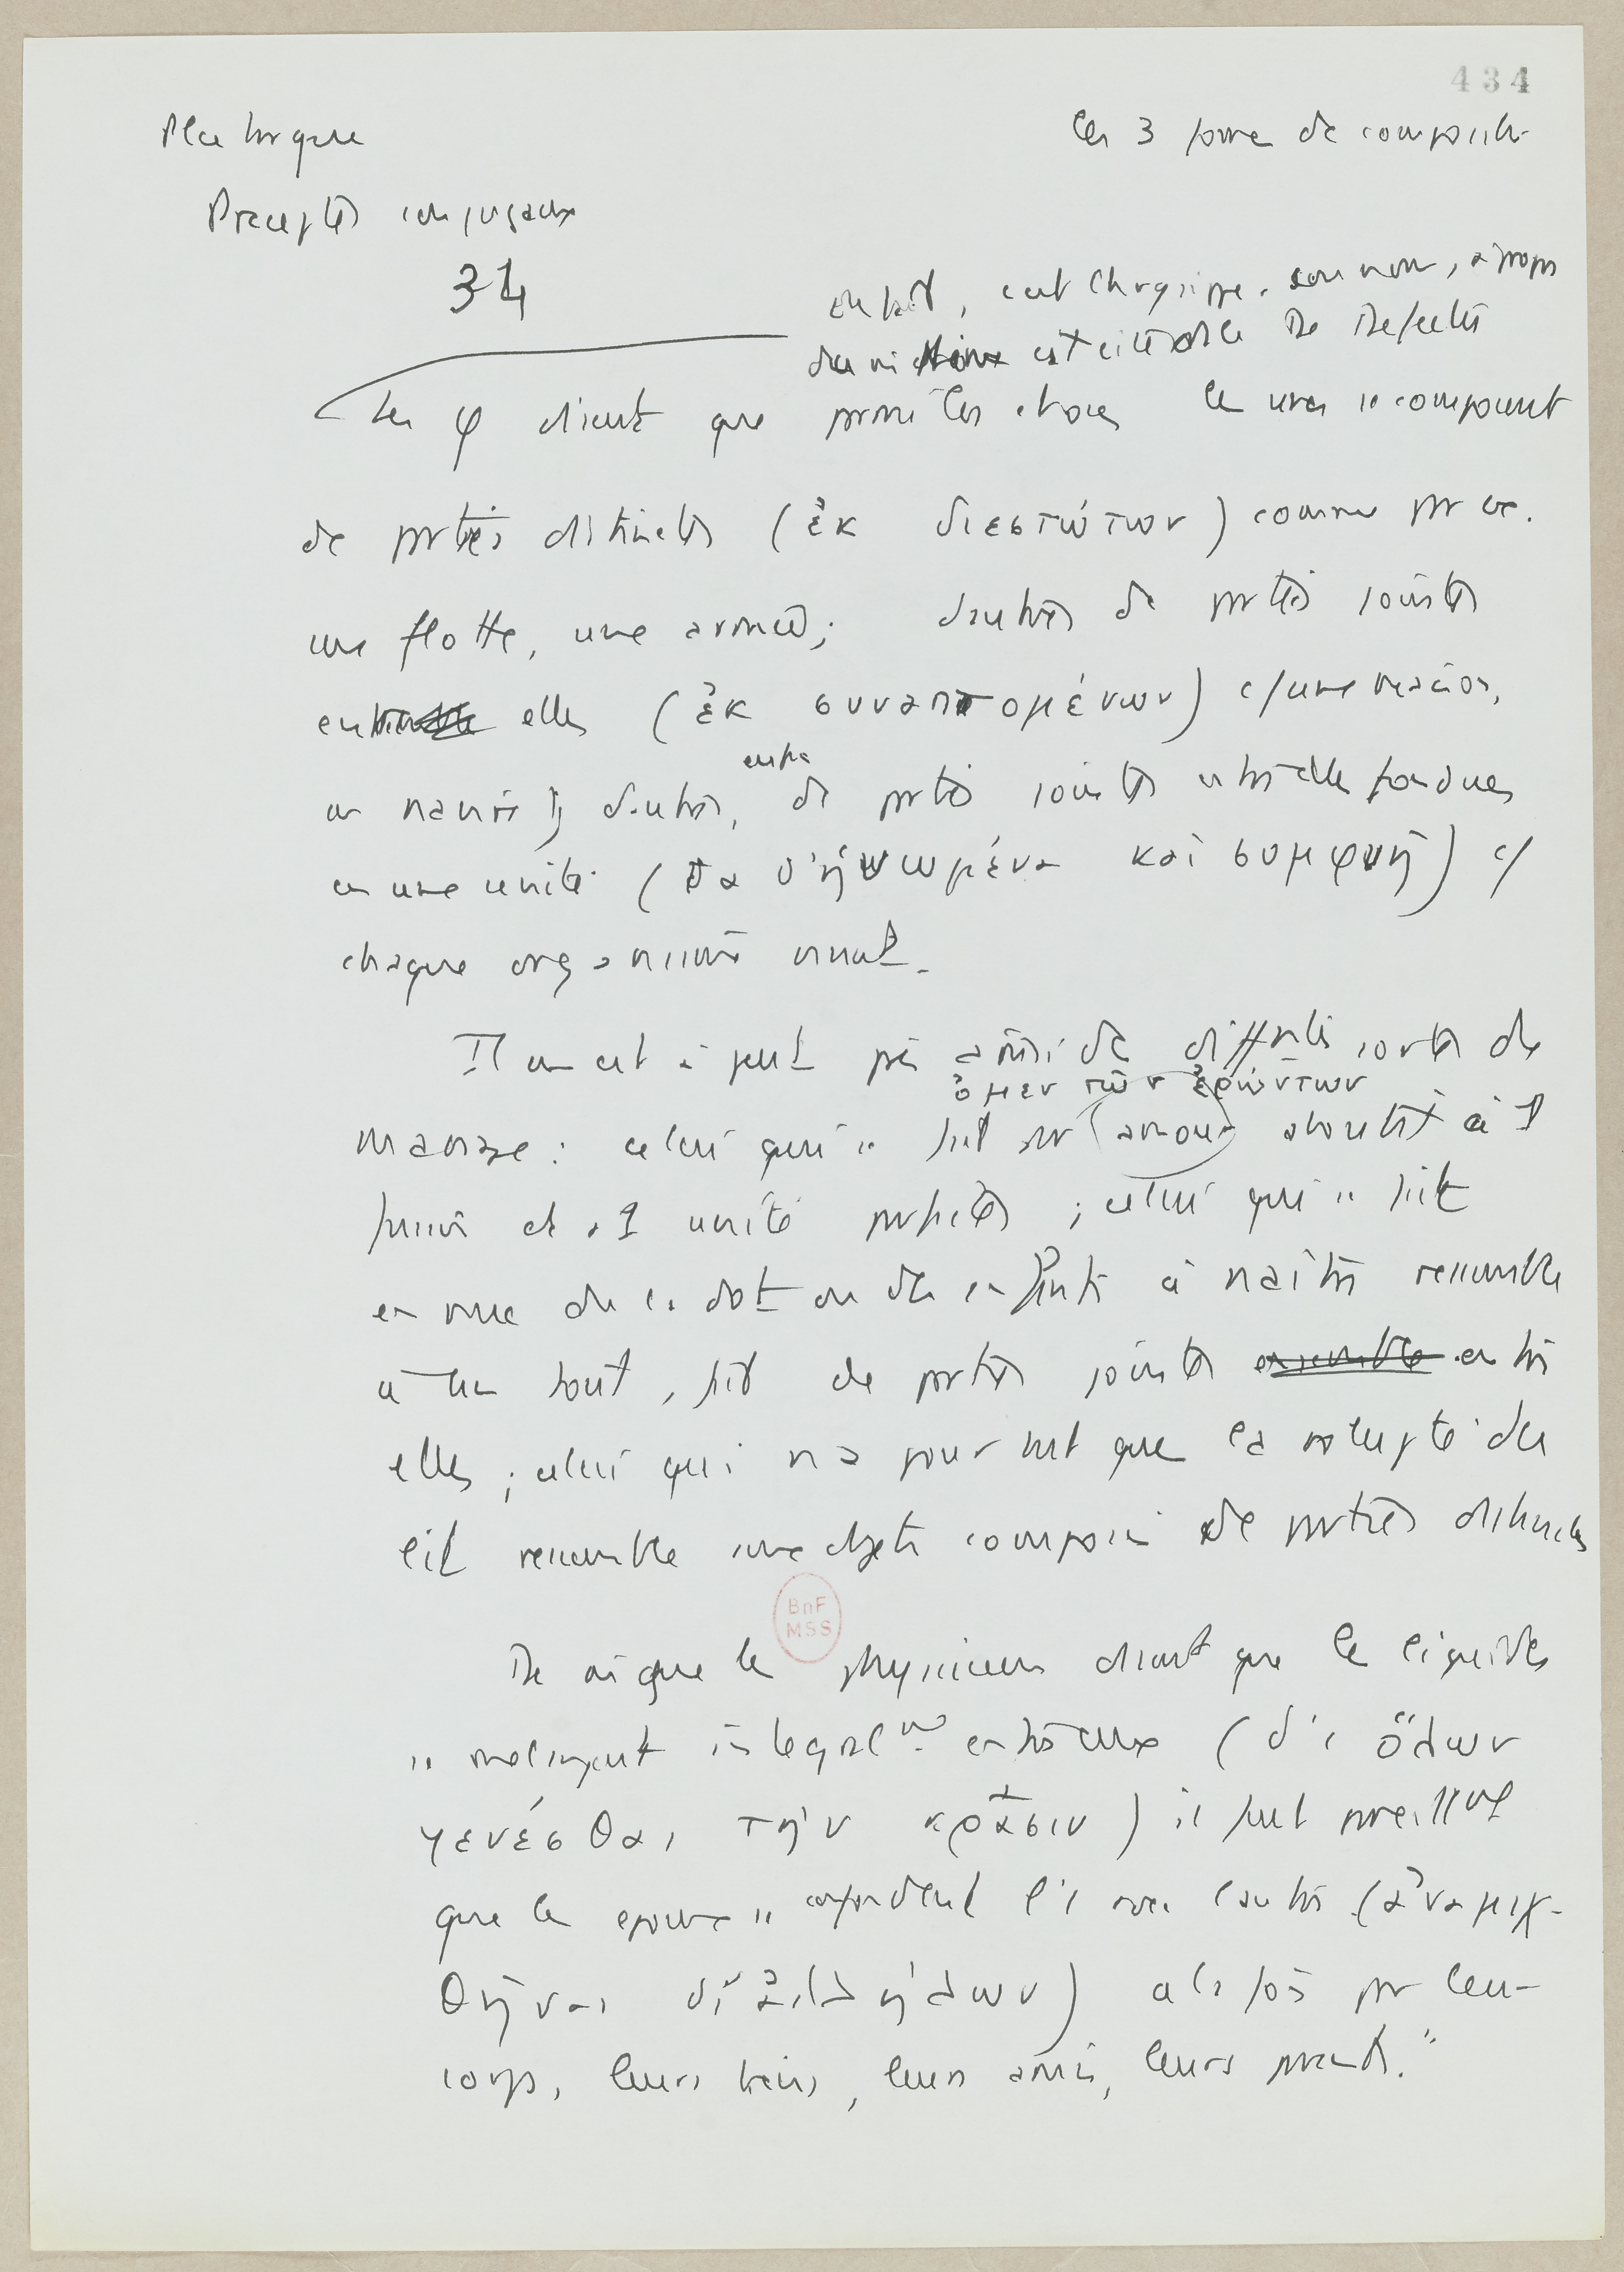 434
Plutarque
Les 3 formes de composition
Preceptes conjugaux
34
en fait, c'est Chrysippe. son nom, à propos
du mi est cité ds le De Defectu
Les φ disent que parmi les choses les unes se composent
de parties distinctes (ἐκ διεστώτων) comme par ex.
une flotte, une armée; d'autres de parties jointes
entre elles (ἐκ συναπτομένων) c/ une maison,
un navire; d'autres, enfin de parties jointes entre elles fondues
en une unité (τα δ'ἡνωμένα και συμφυῆ) c/
chaque organisme vivant.
Il en est à peu près ainsi de différentes sortes de
mariage : celui qui se fait par amour aboutit à 1
ὁ μεν τῶν ἐρώντων
fusion et à 1 unité parfaites ; celui qui se fait
en vue de la dot ou des enfants à naitre ressemble
à un tout, fait de parties jointes ensemble entre
elles ; celui qui n'a pour but que la volupté du
lit ressemble aux objets composés de parties distinctes
BnF
MSS
De mê que les physiciens disent que les liquides
se melangent integralmt entre eux (δι' ὅλων
γενέσθαι τὴν κρᾶσιν) il faut pareillmt
que les epoux se confondent l'1 avec l'autre (ἀναμιχ-
θῆναι δι' ἀλλήλων) à la fois par leur
corps, leurs biens, leurs amis, leurs parents."